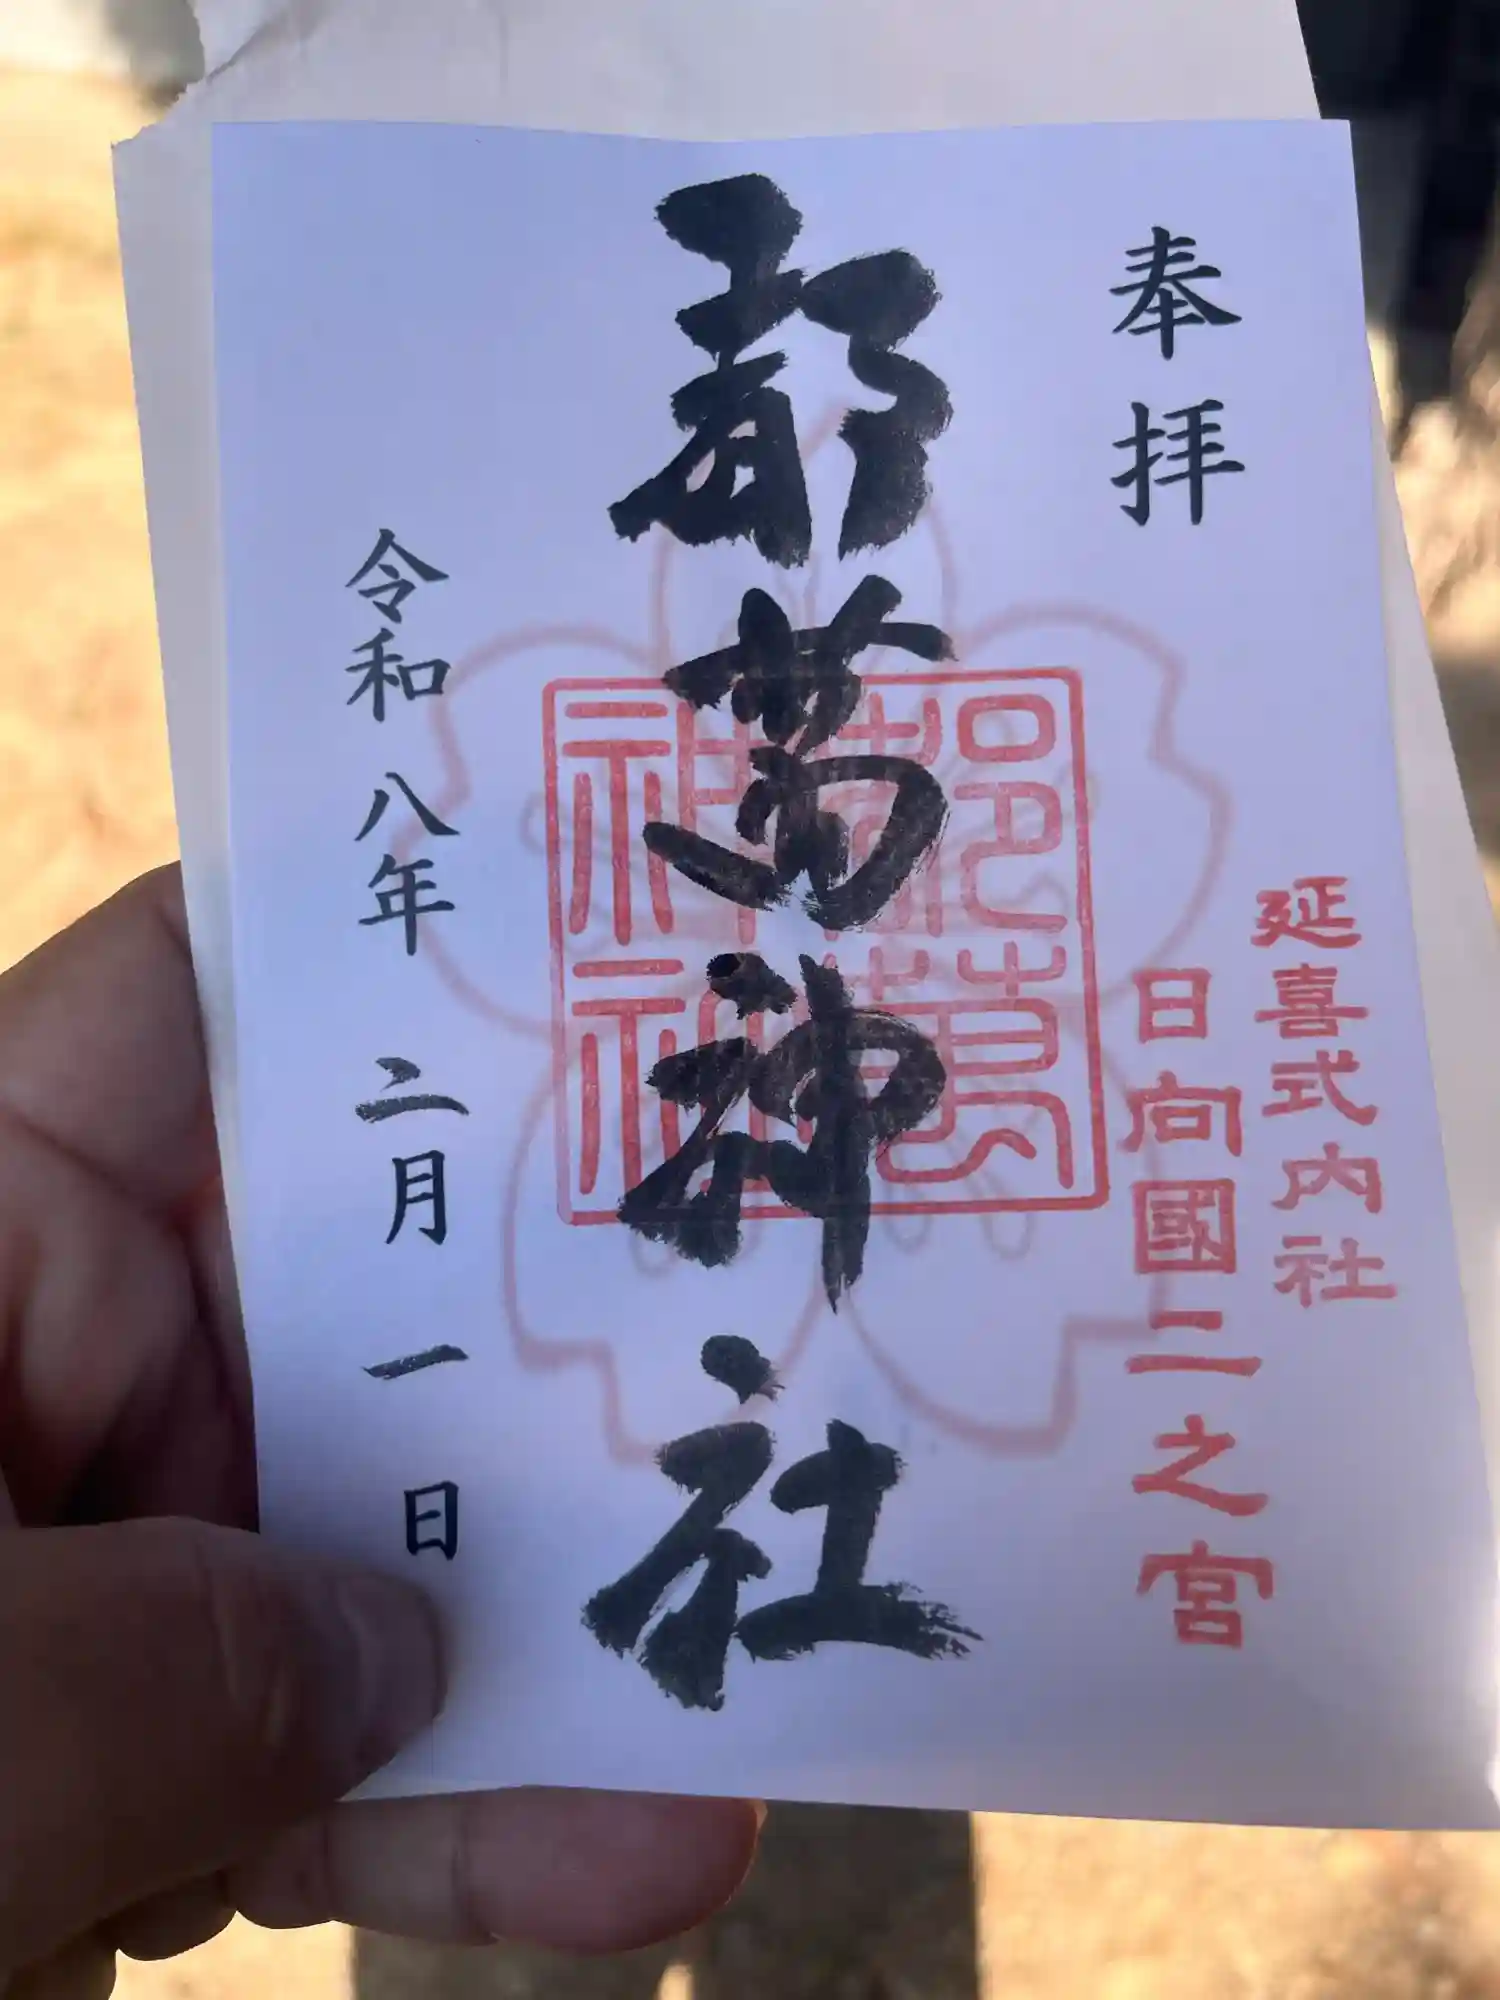 奉拝
延喜式内社
日向國二之宮
都萬神社
都萬神社
令和八年二月一日